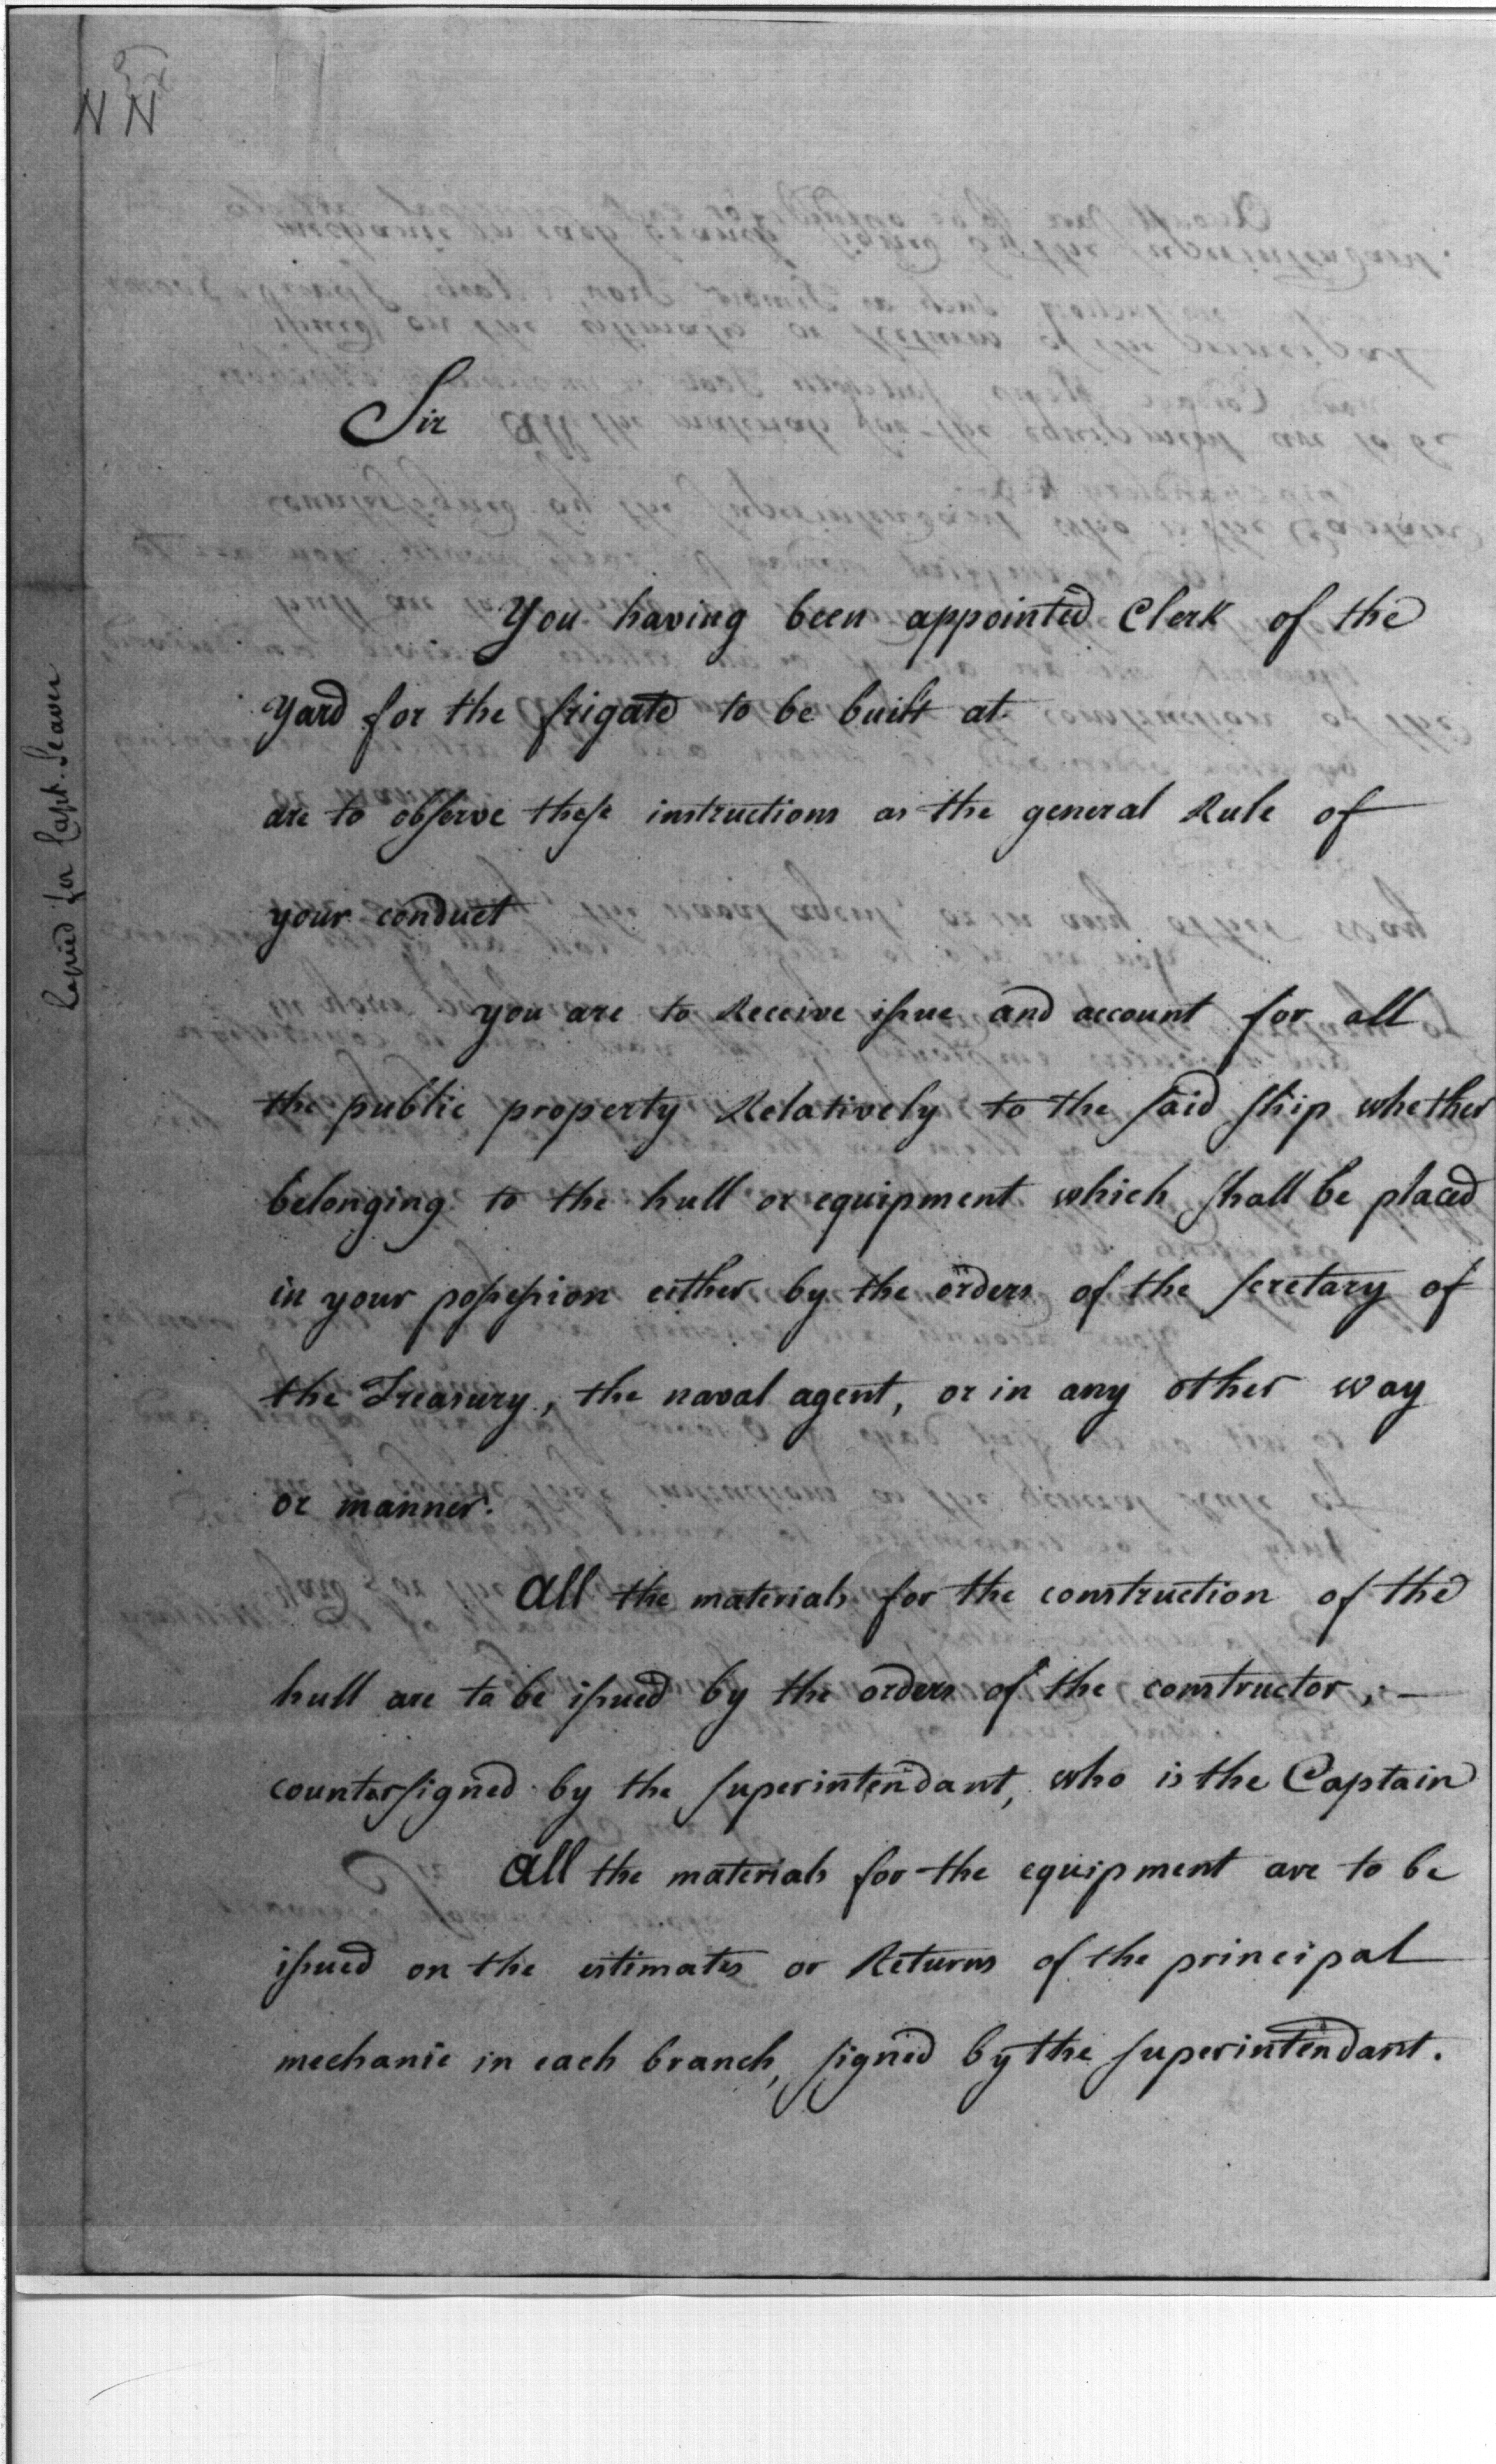 N N
Sir
You having been appointed Clerk of the
yard for the frigate to be built at
are to observe these instructions as the general Rule of
your conduct
you are to Receive issue and account for all
the public property Relatively to the said ship whether
belonging to the hull or equipment which shall be placed
in your possession either by the orders of the secretary of
the Treasury, the naval agent, or in any other way
or manner.
All the materials for the construction of the
hull are to be issued by the orders of the constructor, —
countersigned by the superintendant, who is the Captain
All the materials for the equipment are to be
issued on the estimates or Returns of the principal
mechanic in each branch, signed by the superintendant.
Copied for Capt. Seaver